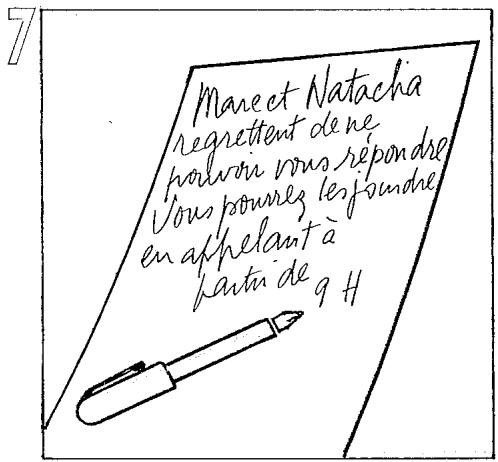 7
Marc et Natacha
regrettent de ne
pouvoir vous répondre
Vous pourrez les joindre
en appelant à
partir de 9 H